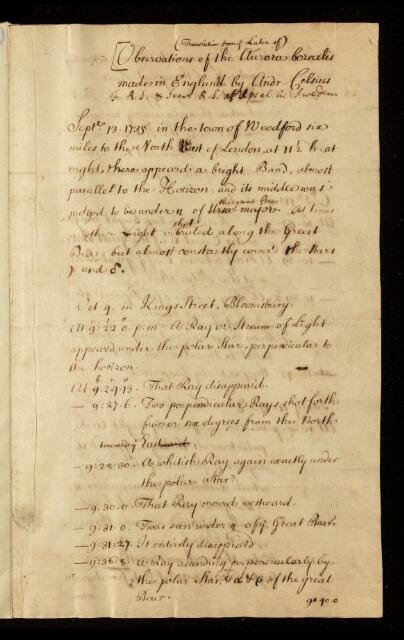 (Translation from ye Latin of)
[Observations of the Aurora borealis
made in England by Andr. Celsius
R.S. & Secr. R.S. of Upsal in Sweden
Septr. 13. 1735. in the town of Woodford six
miles to the North West of London, at 11½ h. at
night, there appeared a bright Band, almost
parallel to the Horizon: and its middle was
judged to be under η of the great Bear
Ursa major. At times
another Light shot
along the Great
Bear: but almost constantly cover'd the stars
γ and δ.
Oct 9. in Kings Street, Bloomsbury.
At 9h 22' 0" p.m. A Ray or Stream of Light
appeared, under the polar Star, perpendicular to
the horizon.
At 9h. 24. 13. That Ray disappeard.
— 9. 27. 6. Two perpendicular Rays shot forth
five or six degrees from the North
towards ye Eastward.
— 9. 28. 30. A whitish Ray again exactly under
the polar Star.
— 9. 30. 0. That Ray moved westward.
— 9. 31. 0. Twas seen under η of ye Great Bear.
— 9. 31. 27. It entirely disappeard.
— 9. 36. 8. A Ray ascending perpendicularly by
the polar Star, & α & β of the great
Bear.
9. 40. 0